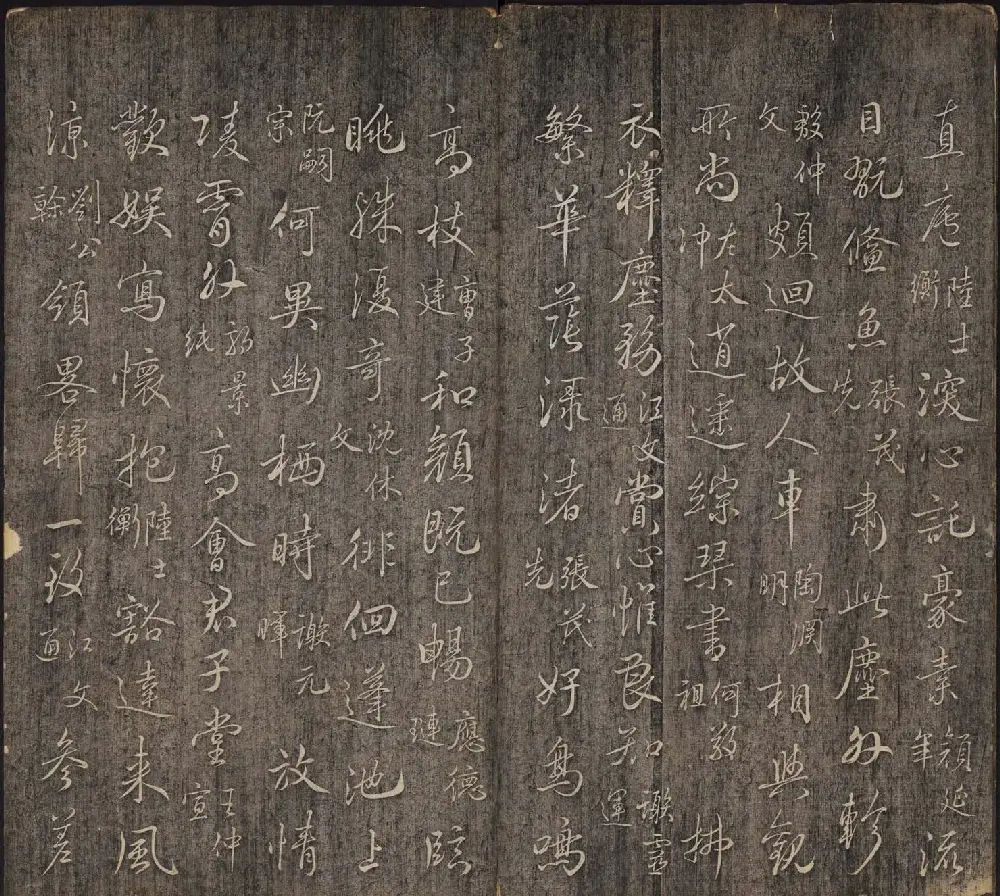 直廬陸士衡深心託豪素顏延年流
目翫儵魚張茂先肅此塵外軫
殷仲文頗迴故人車陶淵明相與觀
所尚左太冲逍遥綜琴書何敬祖拂
衣釋塵務江文通賞心惟良知謝靈運
繁華蔭淥渚張茂先好鳥鳴
高枝曹子建和顏既已暢應德璉臨
眺殊復奇沈休文徘徊蓬池上
阮嗣宗何異幽栖時謝元暉放情
陵霄外郭景純高會君子堂王仲宣
歡娛寫懷抱陸士衡豁達来風
涼劉公幹領畧歸一致江文通參差